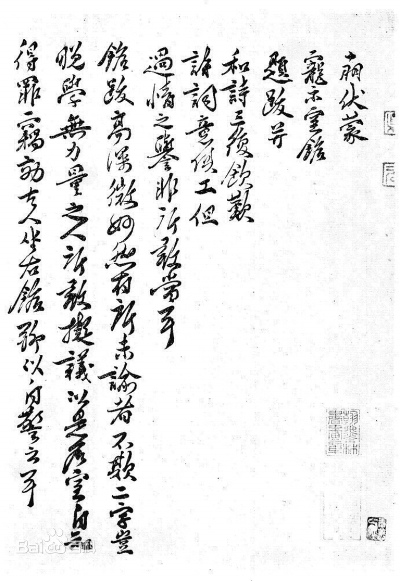 伏蒙
寵示室銘
題跋并
和詩三復欽歎
詩詞意俱工但
過情之譽非所敢當耳
銘跋高深微妙有所未諭者不欺二字豈
晚學無力量之人所敢擬議以是名室自
得罪竊効古人坐右銘聊以自警云耳